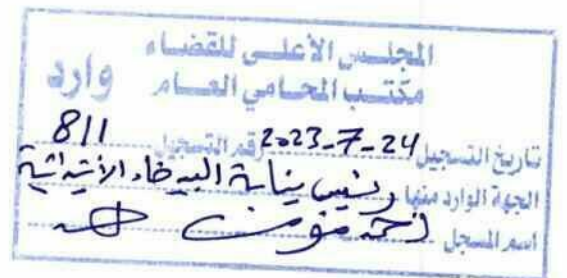 المجلس الأعلى للقضاء
مكتب المحامي العام وارد
تاريخ التسجيل 2023-7-24 رقم التسجيل 811
الجهة الوارد منها رئيس نيابة البيضاء الابتدائية
اسم المسجل